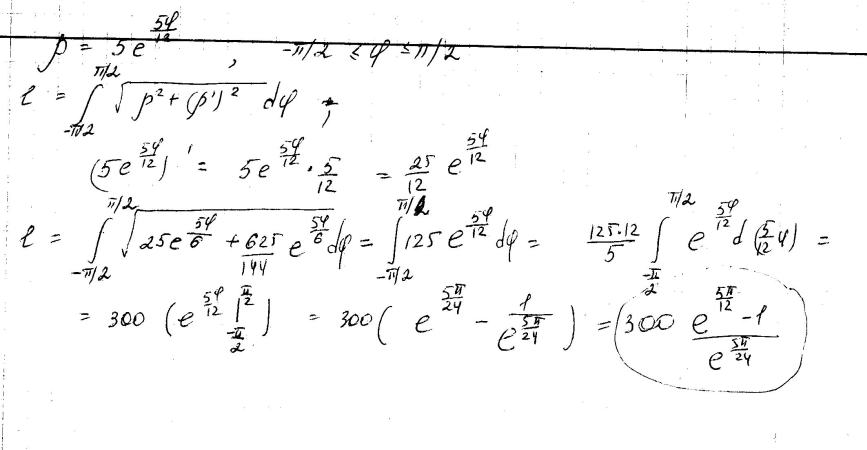 ρ = 5e^{5φ/12}, -π/2 ≤ φ ≤ π/2
l = ∫_{-π/2}^{π/2} √(ρ² + (ρ')²) dφ ;
(5e^{5φ/12})' = 5e^{5φ/12} · 5/12 = 25/12 e^{5φ/12}
l = ∫_{-π/2}^{π/2} √(25e^{5φ/6} + 625/144 e^{5φ/6}) dφ = ∫_{-π/2}^{π/2} 125 e^{5φ/12} dφ = 125·12/5 ∫_{-π/2}^{π/2} e^{5φ/12} d(5/12 φ) =
= 300 (e^{5φ/12} |_{-π/2}^{π/2}) = 300 (e^{5π/24} - 1/e^{5π/24}) = 300 (e^{5π/12} - 1)/e^{5π/24}